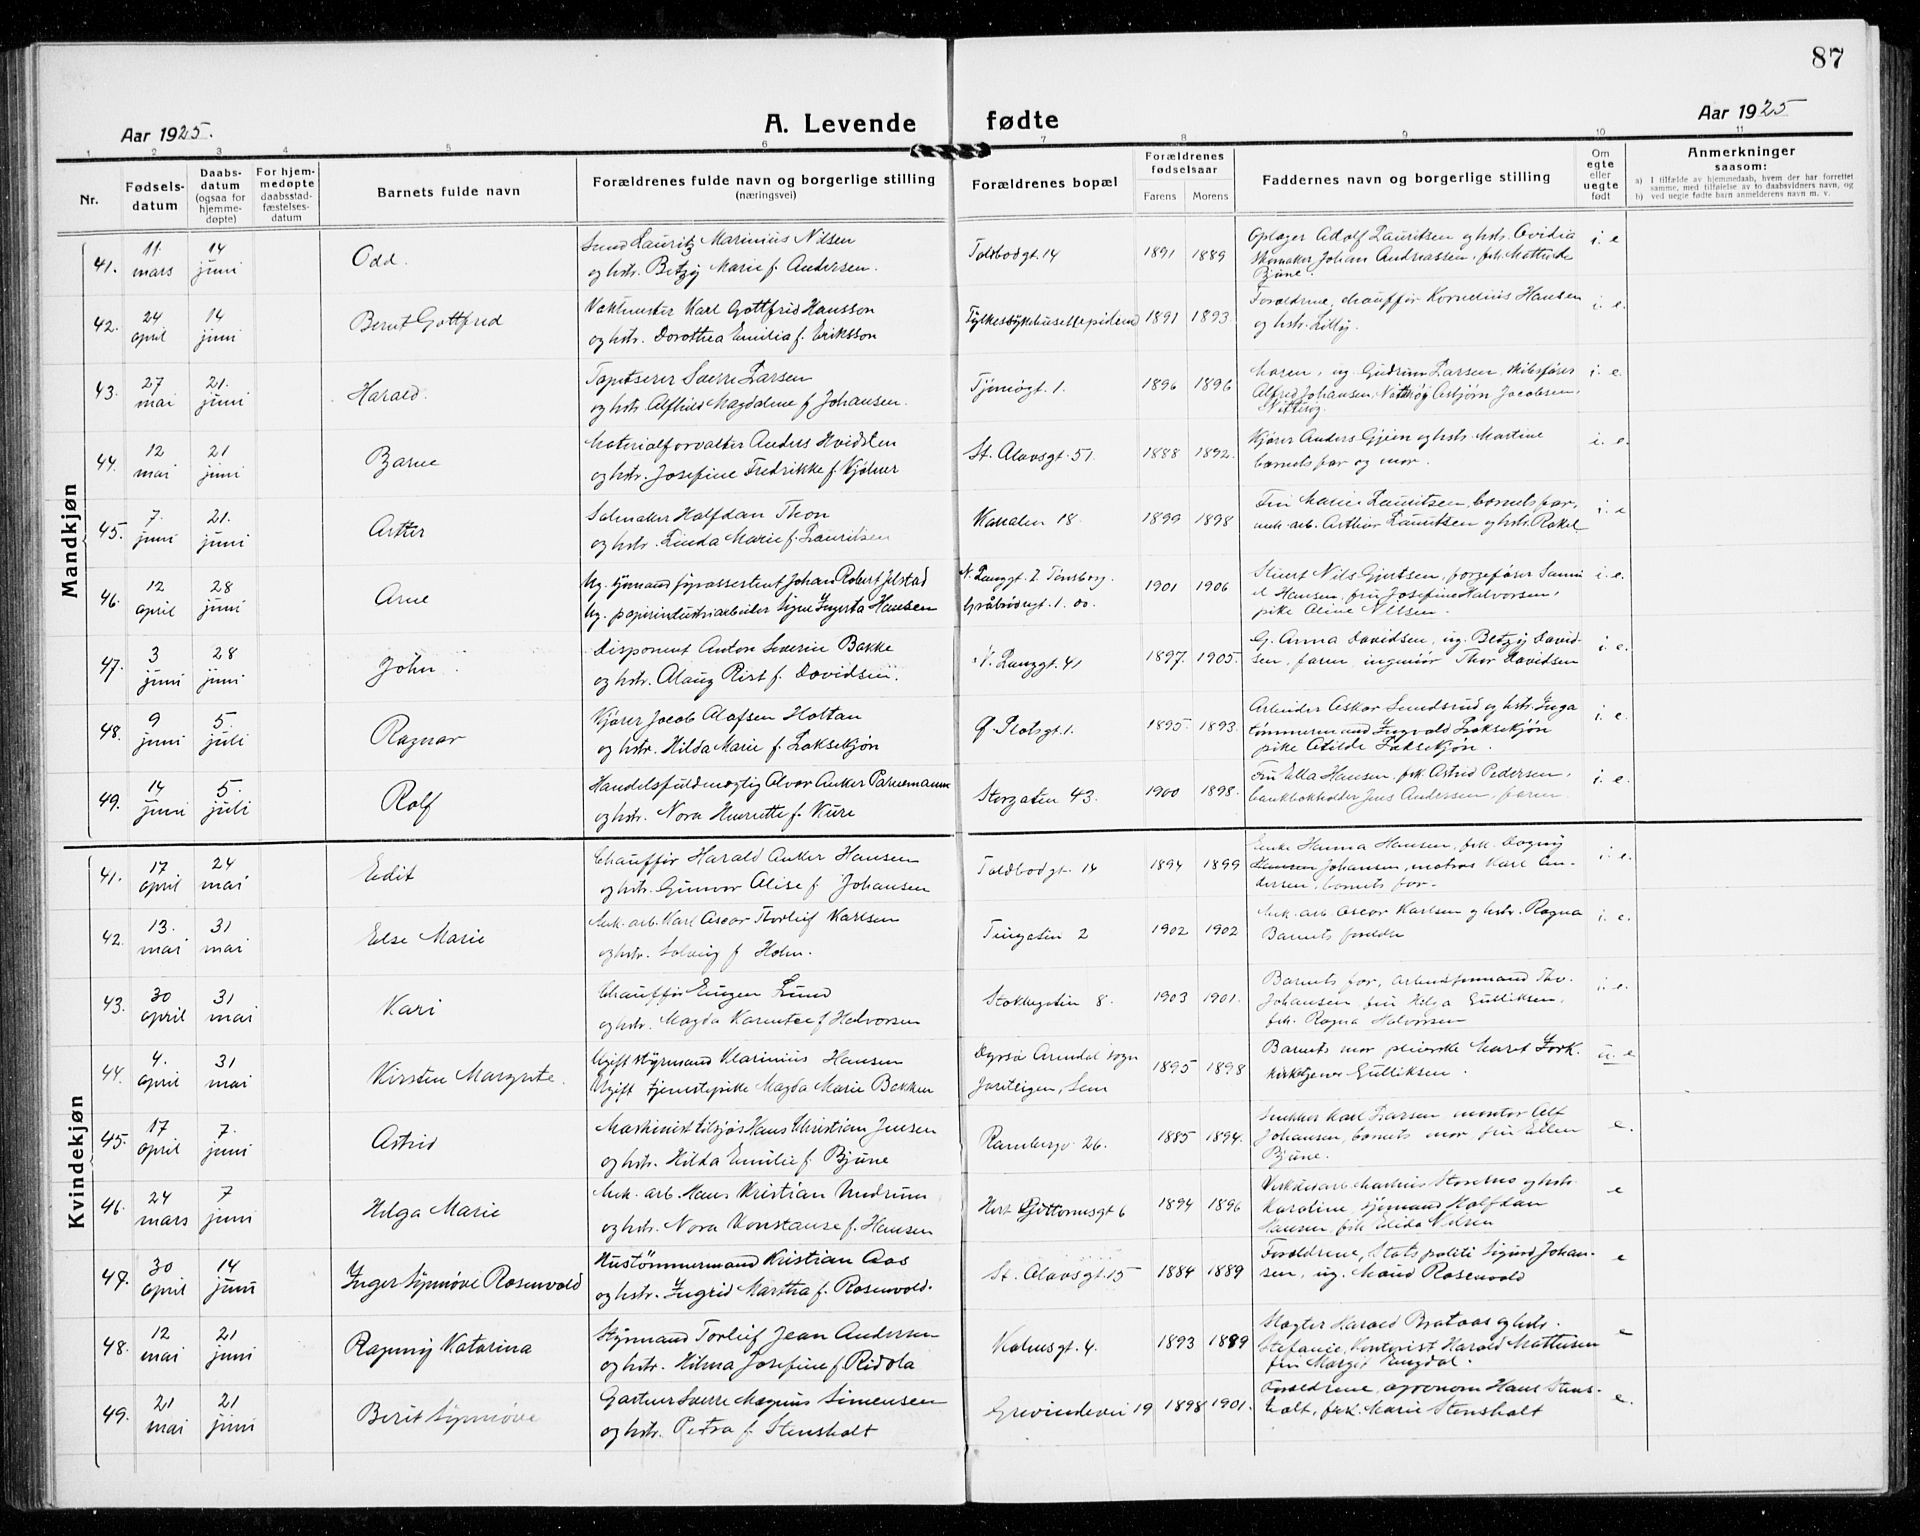 87
Aar 1925.
A. Levende fødte
Aar 1925
1 2 3 4 5 6 7 8 9 10 11
Nr.
Fødsels-
datum
Daabs-
datum
(ogsaa for
hjemme-
døpte)
For hjem-
medøpte
daabsstad-
fæstelses-
datum
Barnets fulde navn
Forældrenes fulde navn og borgerlige stilling
(næringsvei)
Forældrenes bopæl
Forældrenes
fødselsaar
Farens Morens
Faddernes navn og borgerlige stilling
Om
egte
eller
uegte
født
Anmerkninger
saasom:
a) I tilfælde av hjemmedaab, hvem der har forrettet
samme, med tilføielse av to daabsvidners navn, og
b) ved uegte fødte barn anmelderens navn m. v.
Mandkjøn
41. 11 mars 14 juni Odd. Lauritz Marinius Nilsen
og hstr. Betzy Marie f. Andersen.
Toldbodgt. 14 1891 1889
Oplager Adolf Lauritsen og hstr. Ovidia
Skomaker Johan Andreassen, frk. Mathilde
Bjune.
i. e
42. 24 april 14 juni Bernt Gottfrid Vaktmester Karl Gottfrid Hansson
og hstr. Dorothea Emilia f. Eriksson
1891 1893.
Forældrene, chauffør Kornelius Hansen
og hstr. Lilly.
i. e.
43. 27 mai 21. juni Harald. Tapetserer Sverre Larsen
og hstr. Alfhild Magdalene f. Johansen.
Tjømøgt. 1. 1896 1896
Moren, ug. Gudrun Larsen, skibsfører
Alfred Johansen, Nøtterøy Asbjørn Jacobsen,
Nøtterøy.
i. e.
44. 12 mai 21 juni Bjarne Materialforvalter Anders Hvidsten
og hstr. Josefine Fredrikke f. Kjølner
St. Olavsgt. 51. 1888 1892.
Kjører Anders Gjein og hstr. Martine
barnets far og mor.
i. e.
45. 7. juni 21. juni Arther Salmaker Halfdan Thon
og hstr. Linda Marie f. Lauritsen
Kanalen 18. 1899 1898
Fru Marie Lauritsen, barnets far,
mek. arb. Arthur Lauritsen og hstr. Rakel
i. e
46. 12 april 28 juni Arne Ug. fyrassistent Johan Robert Jelstad
Ug. papirindustriarbeider Signe Ingerta Hansen
N. Langgt. 2 Tønsberg.
Gråbrødregt. 1. do. 1901 1906
Stuert Nils Gjertsen, Hansen, fru Josefine Halvorsen,
pike Aline Nilsen.
i. e.
47. 3 juni 28 juni John Disponent Anton Severin Bakke
og hstr. Alaug Rist f. Davidsen.
N. Langgt. 41 1897. 1905.
G. Anna Davidsen, ug. Betzy David-
sen, faren, ingeniør Thor Davidsen
i. e.
48. 9 juni 5. juli Ragnar Kjører Jacob Olafsen Holtan
og hstr. Hilda Marie f. Laksekjøn
G. Slotsgt. 1. 1895. 1893.
Arbeider Oskar Sundsrud og hstr. Inga
tømmermand Ingvald Laksekjøn
pike Otilde Laksekjøn.
i. e.
49. 14 juni 5. juli Rolf Handelsfuldmægtig Alvar Anker Parnemann
og hstr. Nora Henrette f. Kure
Storgaten 43. 1900 1898.
Fru Ella Hansen, frk. Astrid Pedersen,
bankbokholder Jens Andersen, faren
i. e.
Kvindekjøn
41. 17 april 24 mai Edit Chauffør Harald Anker Hansen
og hstr. Gunvor Alise f. Johansen
Toldbodgt. 14 1894 1899
Enke Hanna Hansen, frk. Dagny
Hansen Johansen, matros Karl An-
dersen, barnets far.
i. e.
42. 13. mai 31 mai Else Marie Mek. arb. Karl Oscar Thorleif Karlsen
og hstr. Solveig f. Holm.
Tingaten 2 1902 1902
Mek. arb. Oscar Karlsen og hstr. Ragna
Barnets foreldre
i. e.
43. 30 april 31 mai Kari Chauffør Eugen Lund
og hstr. Magda Karentee f. Halvorsen
Stokkegaten 8. 1903 1901.
Barnets far, arbeidsformand Tho.
Johansen, fru Helga Gulliksen,
frk. Ragna Halvorsen
i. e.
44. 4. april 31 mai Kirsten Margrete. Ugift styrmand Klarinius Hansen
Ugift tjenestepike Magda Marie Bakken
Dyrsø Arendal sogn
Jarteigen, Sem 1895 1898
Barnets mor, pleierske Maret Fork.
kirketjener Gulliksen.
u. e
45. 17 april 7. juni Astrid Maskinist tilsjøs Hans Christian Jensen
og hstr. Hilda Emilie f. Bjune
Rambergv. 26. 1885 1894.
Snekker Karl Larsen, montør Alf
Johansen, barnets mor, fru Ellen
Bjune.
e.
46. 24 mars 7 juni Helga Marie Mek. arb. Hans Kristian Undrum
og hstr. Nora Konstanse f. Hansen
1894 1896
Karoline, sjømand Halfdan
Hansen, frk. Elida Nilsen
e
47. 30 april 14 juni Inger Synnøve Rosenvold Hustømmermand Kristian Aas
og hstr. Ingrid Martha f. Rosenvold.
St. Olavsgt. 15 1884 1889
Forældrene, Statspoliti Sigurd Johan-
sen, ug. Maud Rosenvold
e
48. 12 mai 21 juni Ragnny Katarina Styrmand Torleif Jean Andersen
og hstr. Hilma Josefine f. Ridola
Kalnesgt. 4. 1893 1889
Slagter Harald Brataas og hstr.
Stefanie, kontorist Harald Mathisen
fru Margit Engdal.
e
49. 21 mai 21 juni Berit Synnøve Gartner Sverre Magnus Simensen
og hstr. Petra f. Stensholt
Grevindevei 19 1898 1901.
Forældrene, agronom Hans Stens-
holt, frk. Marie Stensholt
e.